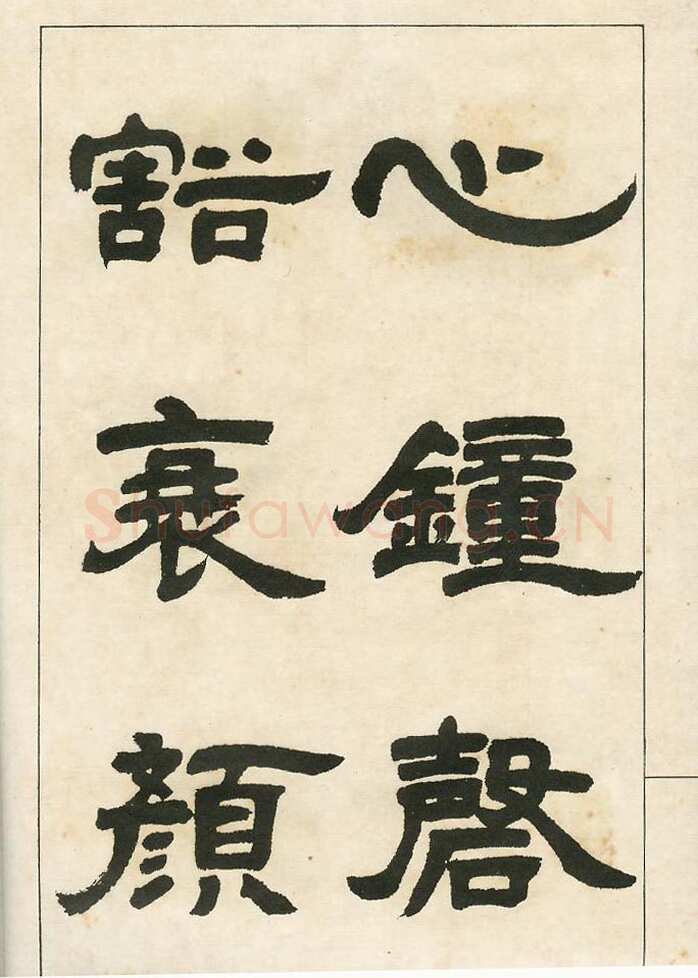 心鐘磬
豁衰顏
Shufawang.CN